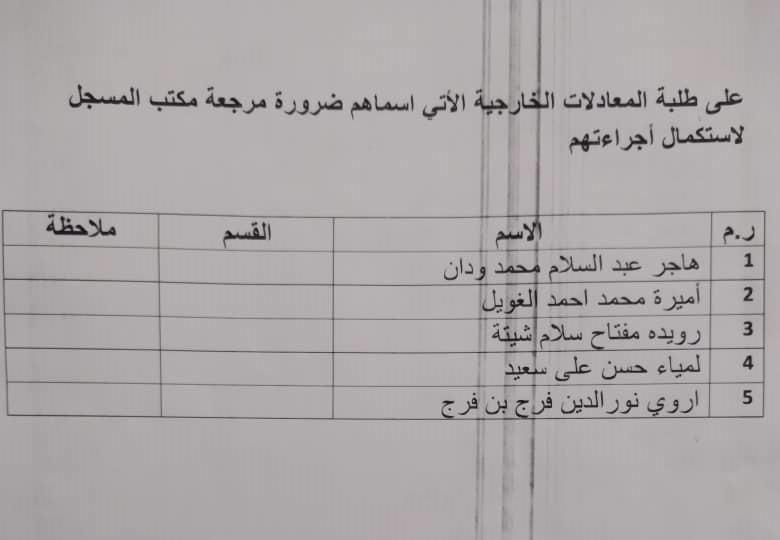 على طلبة المعادلات الخارجية الأتي اسماهم ضرورة مرجعة مكتب المسجل
لاستكمال أجراءتهم
ر.م الاسم القسم ملاحظة
1 هاجر عبد السلام محمد ودان
2 أميرة محمد احمد الغويل
3 رويده مفتاح سلام شيتة
4 لمياء حسن على سعيد
5 اروي نورالدين فرج بن فرج